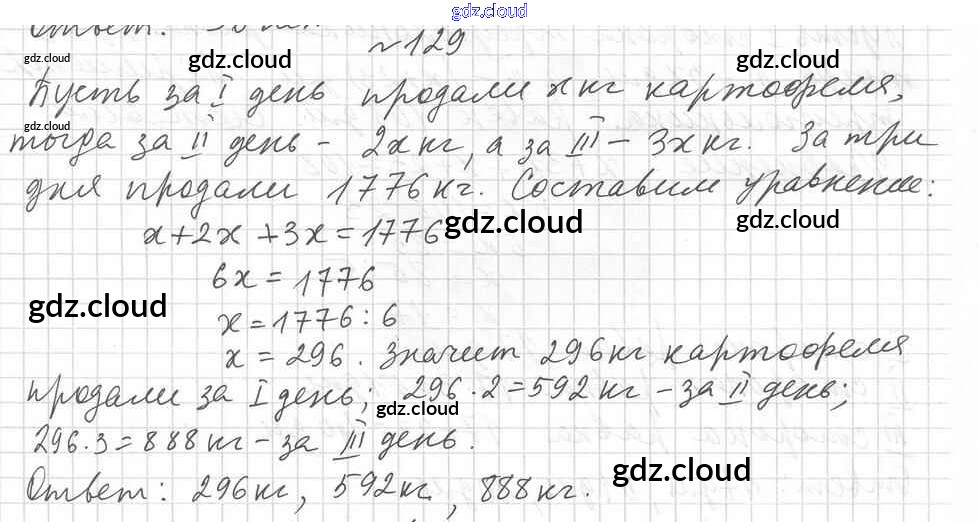 gdz.cloud
Ответ:
№129
gdz.cloud gdz.cloud gdz.cloud
Пусть за I день продали x кг картофеля,
gdz.cloud
тогда за II день - 2x кг, а за III - 3x кг. За три
дня продали 1776 кг. Составим уравнение:
x+2x+3x=1776
gdz.cloud gdz.cloud
6x=1776
gdz.cloud
x=1776:6
x=296. Значит 296 кг картофеля
продали за I день; 296·2=592 кг - за II день;
gdz.cloud
296·3=888 кг - за III день.
gdz.cloud
Ответ: 296 кг, 592 кг, 888 кг.